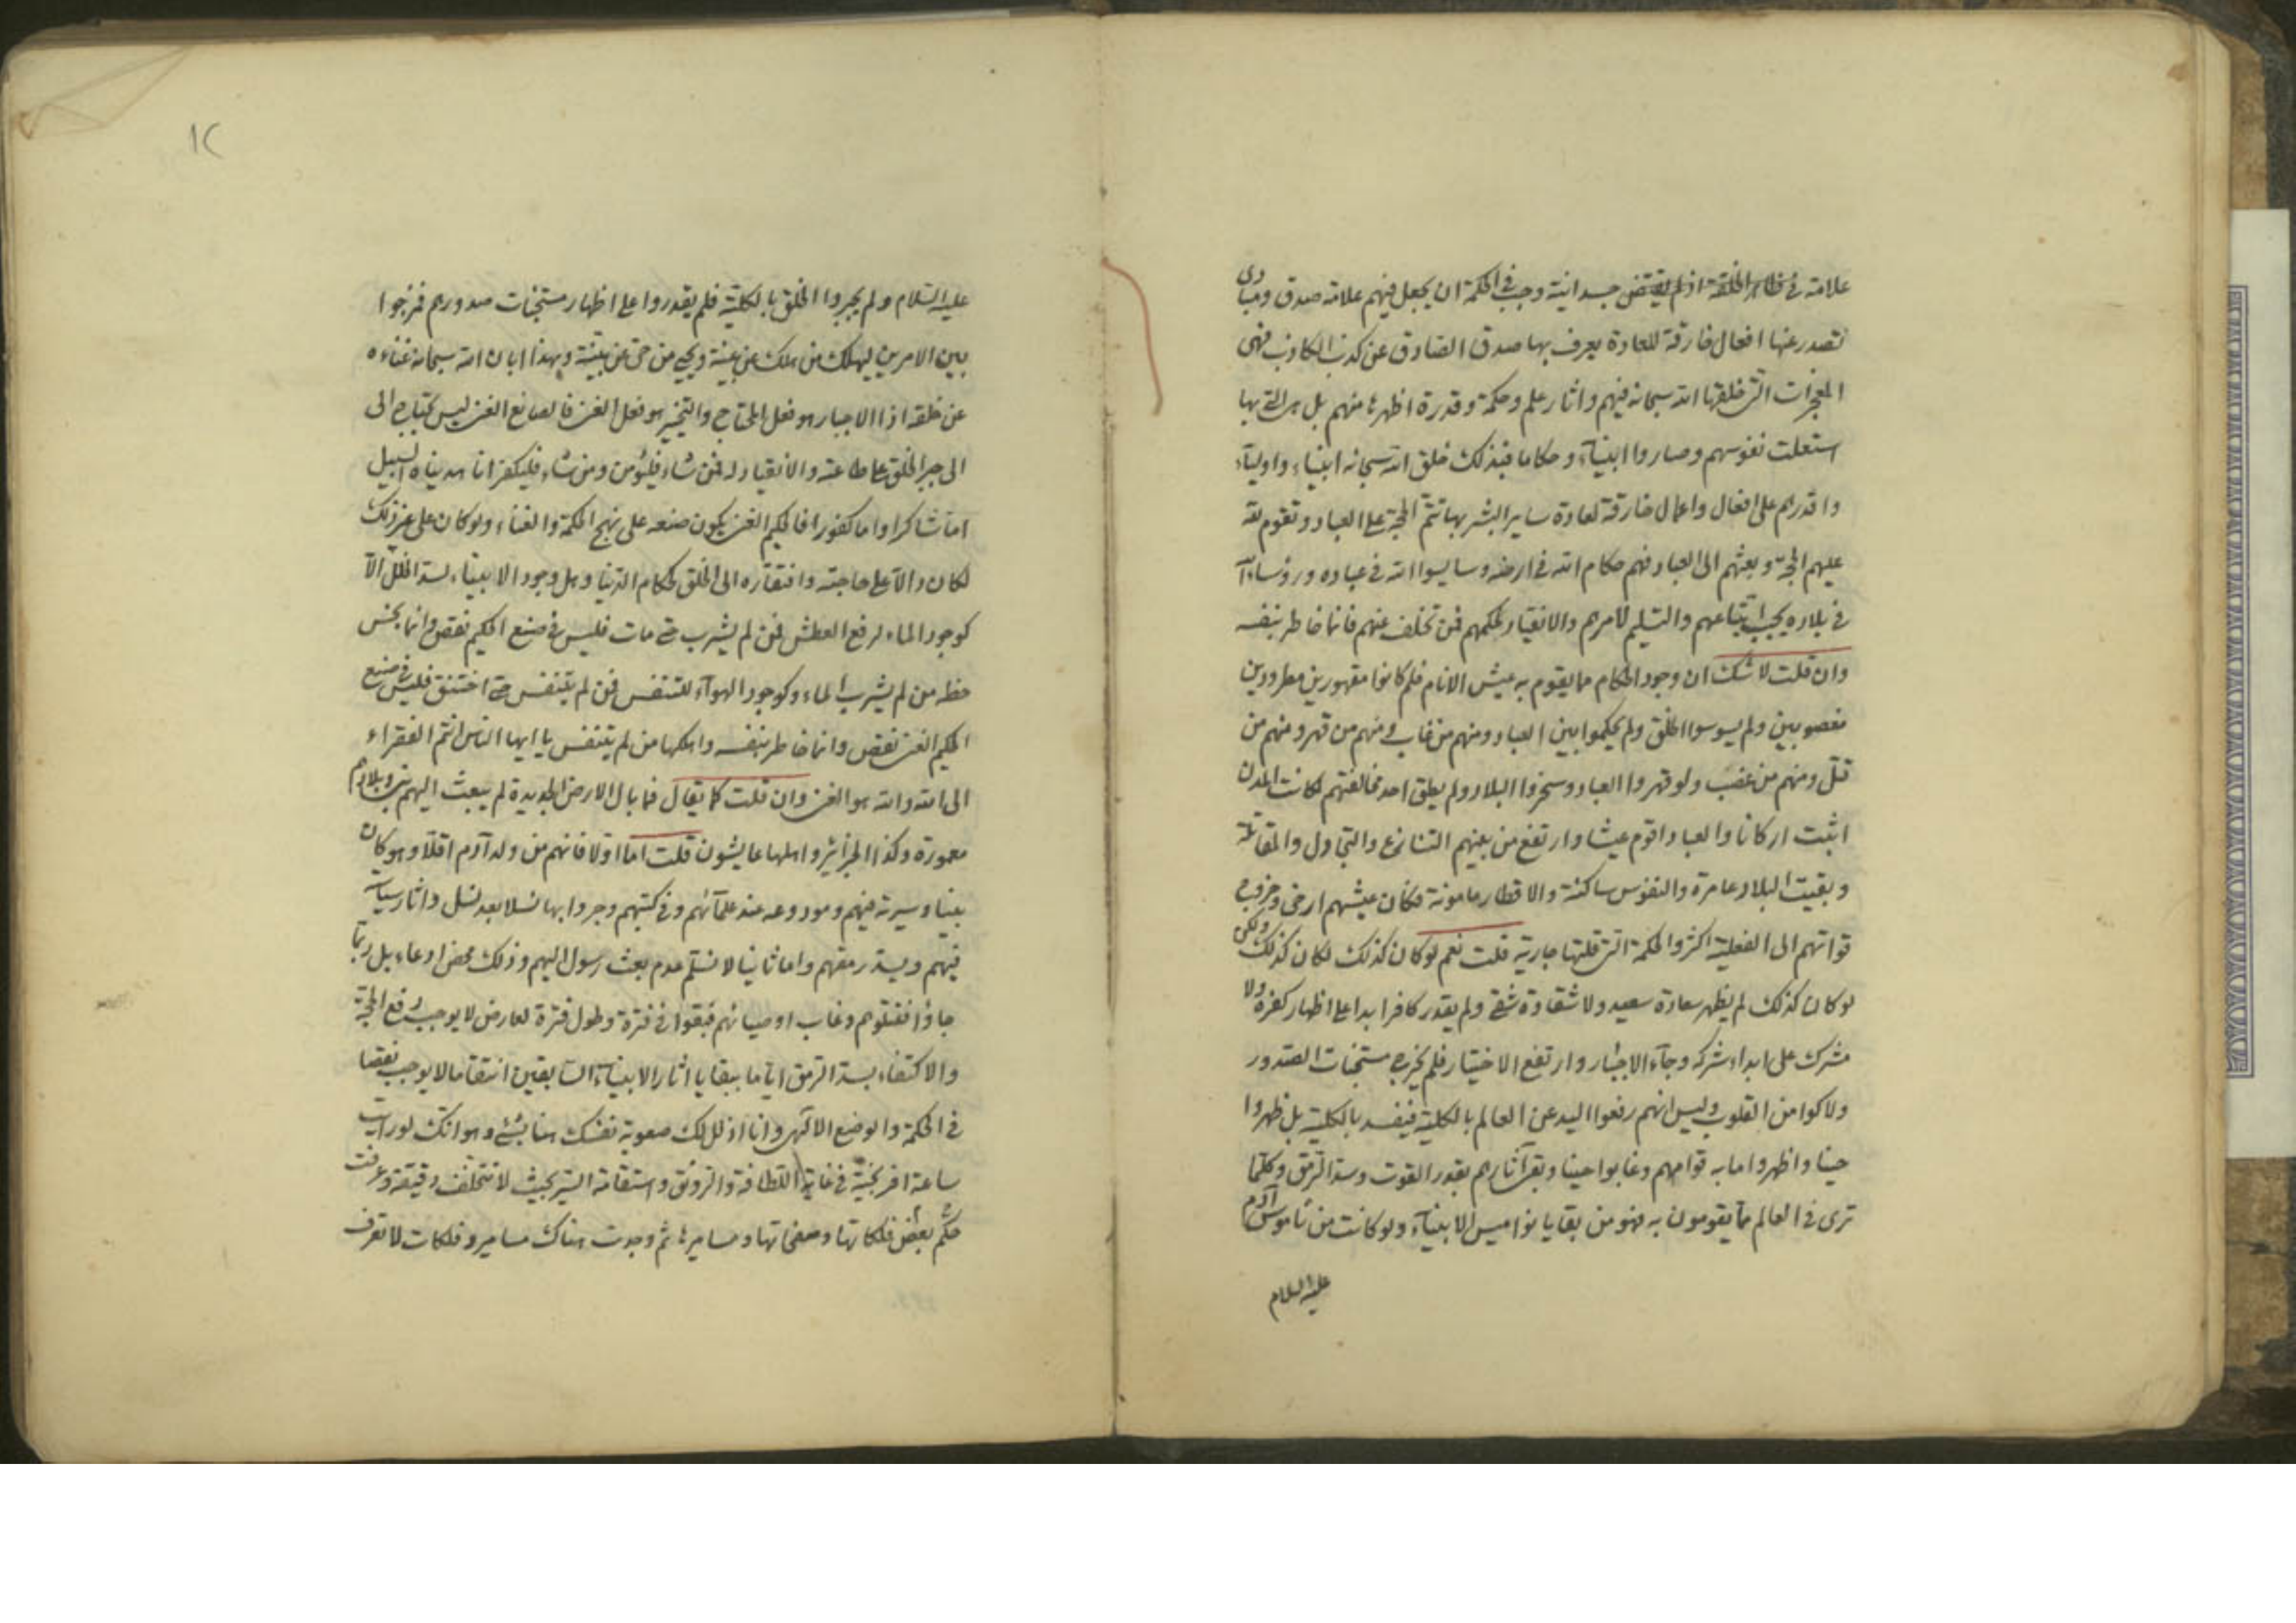 علامة في ظاهر الخلقة اذ لم يقتض جسدانية وجب في الحكمة ان يجعل فيهم علامة صدق ومبادى
تصدر عنها افعال خارقة للعادة يعرف بها صدق الصادق عن كذب الكاذب فهى
المعجزات التى خلقها الله سبحانه فيهم واثار علم وحكمة وقدرة اظهرها منهم بل هى التى بها
استعلت نفوسهم وصاروا انبياء وحكاما فبذلك خلق الله سبحانه انبياء واولياء
واقدرهم على افعال واعمال خارقة لعادة ساير البشر بها تتم الحجة على العباد وتقوم لله
عليهم الحجة وبعثهم الى العباد فهم حكام الله في ارضه وسايسوا الله في عباده ورؤساء الله
في بلاده يجب اتباعهم والتسليم لامرهم والانقياد لحكمهم فمن تخلف عنهم فانما خاطر بنفسه
وان قلت لا شك ان وجود الحكام مما يقوم به عيش الانام فلم كانوا مقهورين مطرودين
مغصوبين ولم يسوسوا الخلق ولم يحكموا بين العباد ومنهم من غاب ومنهم من قهر ومنهم من
قتل ومنهم من غصب ولو قهروا العباد وسخروا البلاد ولم يطق احد مخالفتهم لكانت المدن
اثبت اركانا والعباد اقوم عيشا وارتفع من بينهم التنازع والتجادل والمقاتلة
وبقيت البلاد عامرة والنفوس ساكنة والاقطار مامونة فكان عيشهم ارخى وخروج
قواتهم الى الفعلية اكثر والحكمة التى قلتها جارية قلت نعم لو كان كذلك لكان كذلك ولكن
لو كان كذلك لم يظهر سعادة سعيد ولا شقاوة شقى ولم يقدر كافر ابدا على اظهار كفره ولا
مشرك على ابداء شركه وجاء الاجبار وارتفع الاختيار فلم يخرج مستجنات الصدور
ولا كوامن القلوب وليس انهم رفعوا اليد عن العالم بالكلية فيفسد بالكلية بل ظهروا
حينا واظهروا ما به قوامهم وغابوا حينا وبقى آثارهم بقدر القوت وسد الرمق وكلما
ترى في العالم مما يقومون به فهو من بقايا نواميس الانبياء ولو كانت من ناموس آدم
عليه السلام
١٢
عليه السلام ولم يجبروا الخلق بالكلية فلم يقدروا على اظهار مستجنات صدورهم فمزجوا
بين الامرين ليهلك من هلك عن بينة ويحيى من حى عن بينة وبهذا ابان الله سبحانه غناءه
عن خلقه اذ الاجبار هو فعل المحتاج والتخيير هو فعل الغنى فالصانع الغنى ليس يحتاج الى
الى جبر الخلق على طاعته والانقياد له فمن شاء فليؤمن ومن شاء فليكفر انا هديناه السبيل
اما شاكرا واما كفورا فالحكيم الغنى يكون صنعه على نهج الحكمة والغناء ولو كان على غير ذلك
لكان دالا على حاجته وافتقاره الى الخلق كحكام الدنيا وهل وجود الانبياء لسد الخلل الا
كوجود الماء لرفع العطش فمن لم يشرب حتى مات فليس في صنع الحكيم نقص وانما بخس
حظه من لم يشرب الماء وكوجود الهواء للتنفس فمن لم يتنفس حتى اختنق فليس في صنع
الحكيم الغنى نقص وانما خاطر بنفسه واهلكها من لم يتنفس يا ايها الناس انتم الفقراء
الى الله والله هو الغنى وان قلت كما يقال فما بال الارض الجديدة لم يبعث اليهم نبى وبلادهم
معمورة وكذا الجزائر واهلها عايشون قلت اما اولا فانهم من ولد آدم اقلا وهو كان
نبيا وسيرته فيهم ومودوعه عند علمائهم وفي كتبهم وجروا بها نسلا بعد نسل واثار سياسته
فيهم ويسد رمقهم واما ثانيا لا نسلم عدم بعث رسول اليهم وذلك محض ادعاء بل ربما
جاؤا فقتلوهم وغاب اوصيائهم فبقوا في فترة وطول فترة لعارض لا يوجب رفع الحجة
والاكتفاء بسد الرمق اياما ببقايا اثار الانبياء السابقين انتقاما لا يوجب نقصا
في الحكمة والوضع الالهى وانا اذلل لك صعوبة نفسك هنا بشئ وهو انك لو رايت
ساعة افرنجية في غاية اللطافة والرونق واستقامة السير بحيث لا تتخلف دقيقة وعرفت
حكم بعض فلكاتها وصفحاتها ومساميرها ثم وجدت هناك مسامير وفلكات لا تعرف